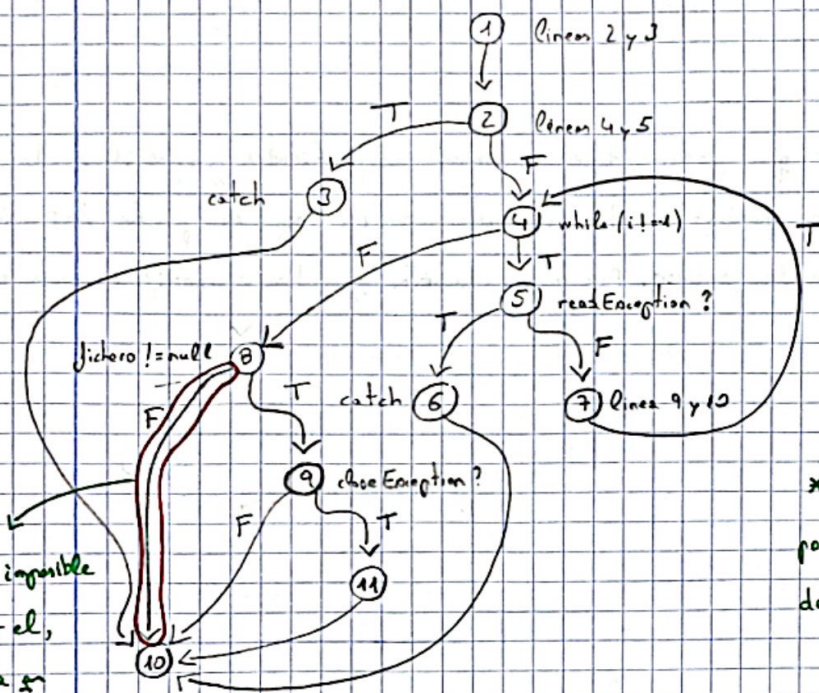 1 lineas 2 y 3
2 lineas 4 y 5
T
F
catch 3
4 while (i != -1)
T
F
T
5 readException ?
T
F
fichero != null 8
F
T
catch 6
7 linea 9 y 10
9 closeException ?
F
T
imposible
11
el,
10